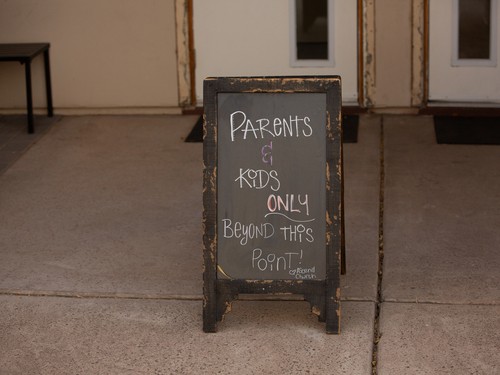 PARENTS
&
KiDS
ONLY
BEYOND THiS
POiNT!
Church